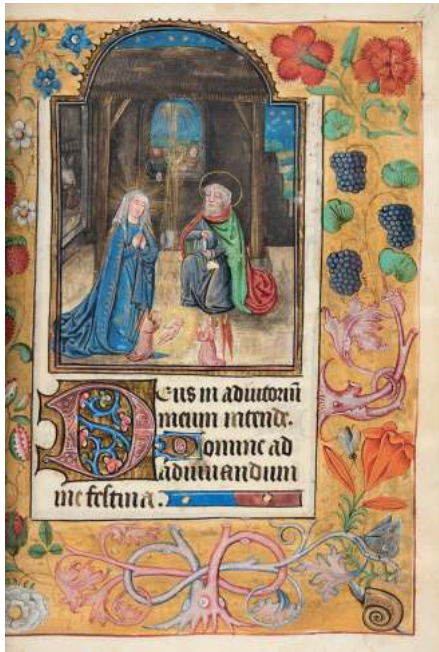 Deus in adiutoriū
meum intende.
Domine ad
adiuuandum
me festina.